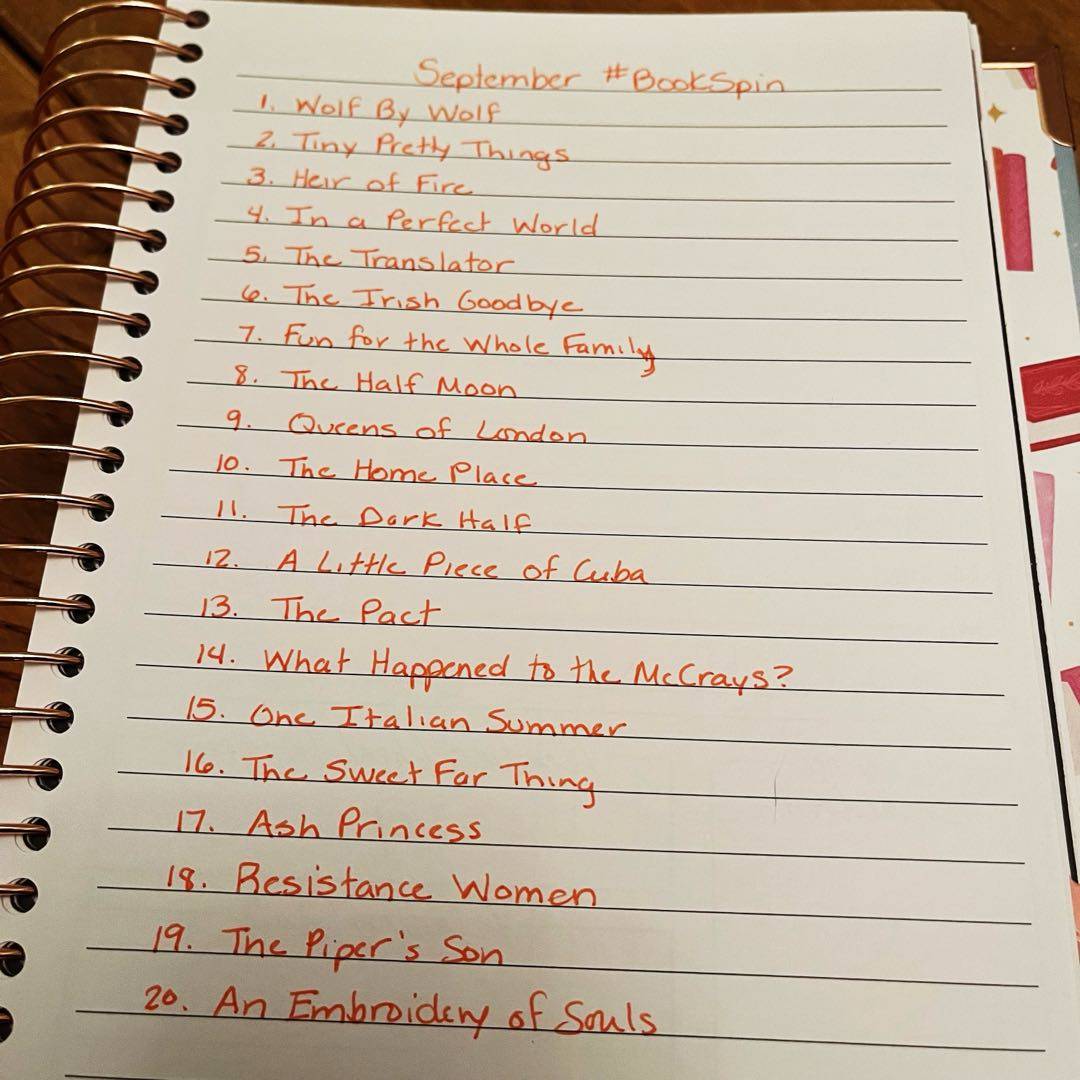 September #BookSpin
1. Wolf By Wolf
2. Tiny Pretty Things
3. Heir of Fire
4. In a Perfect World
5. The Translator
6. The Irish Goodbye
7. Fun for the Whole Family
8. The Half Moon
9. Queens of London
10. The Home Place
11. The Dark Half
12. A Little Piece of Cuba
13. The Pact
14. What Happened to the McCrays?
15. One Italian Summer
16. The Sweet Far Thing
17. Ash Princess
18. Resistance Women
19. The Piper's Son
20. An Embroidery of Souls